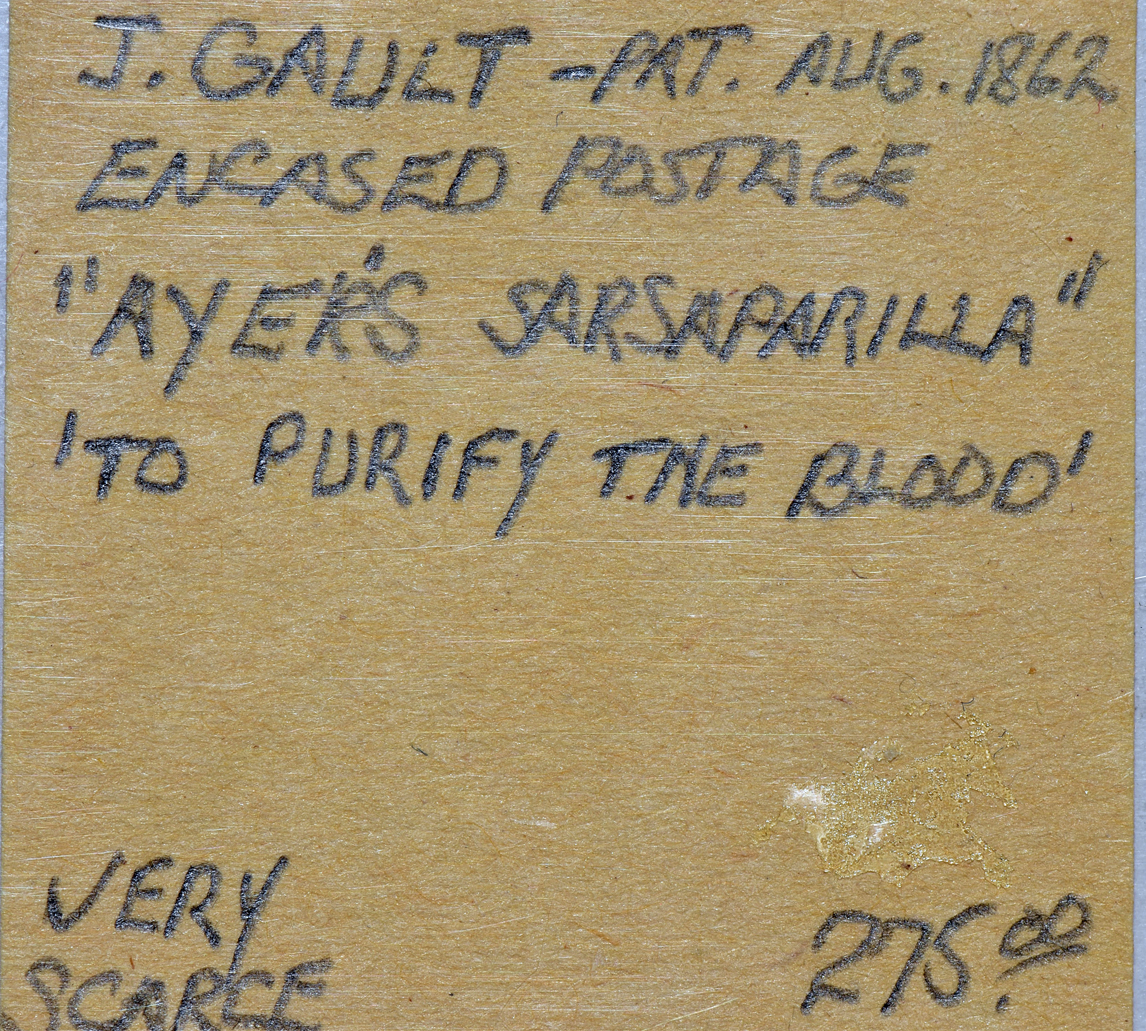 J. GAULT - PAT. AUG. 1862
ENCASED POSTAGE
"AYER'S SARSAPARILLA"
'TO PURIFY THE BLOOD'
VERY
SCARCE
275.00